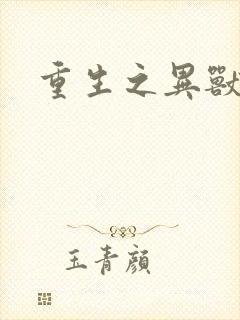 重生之異獸
玉青顏